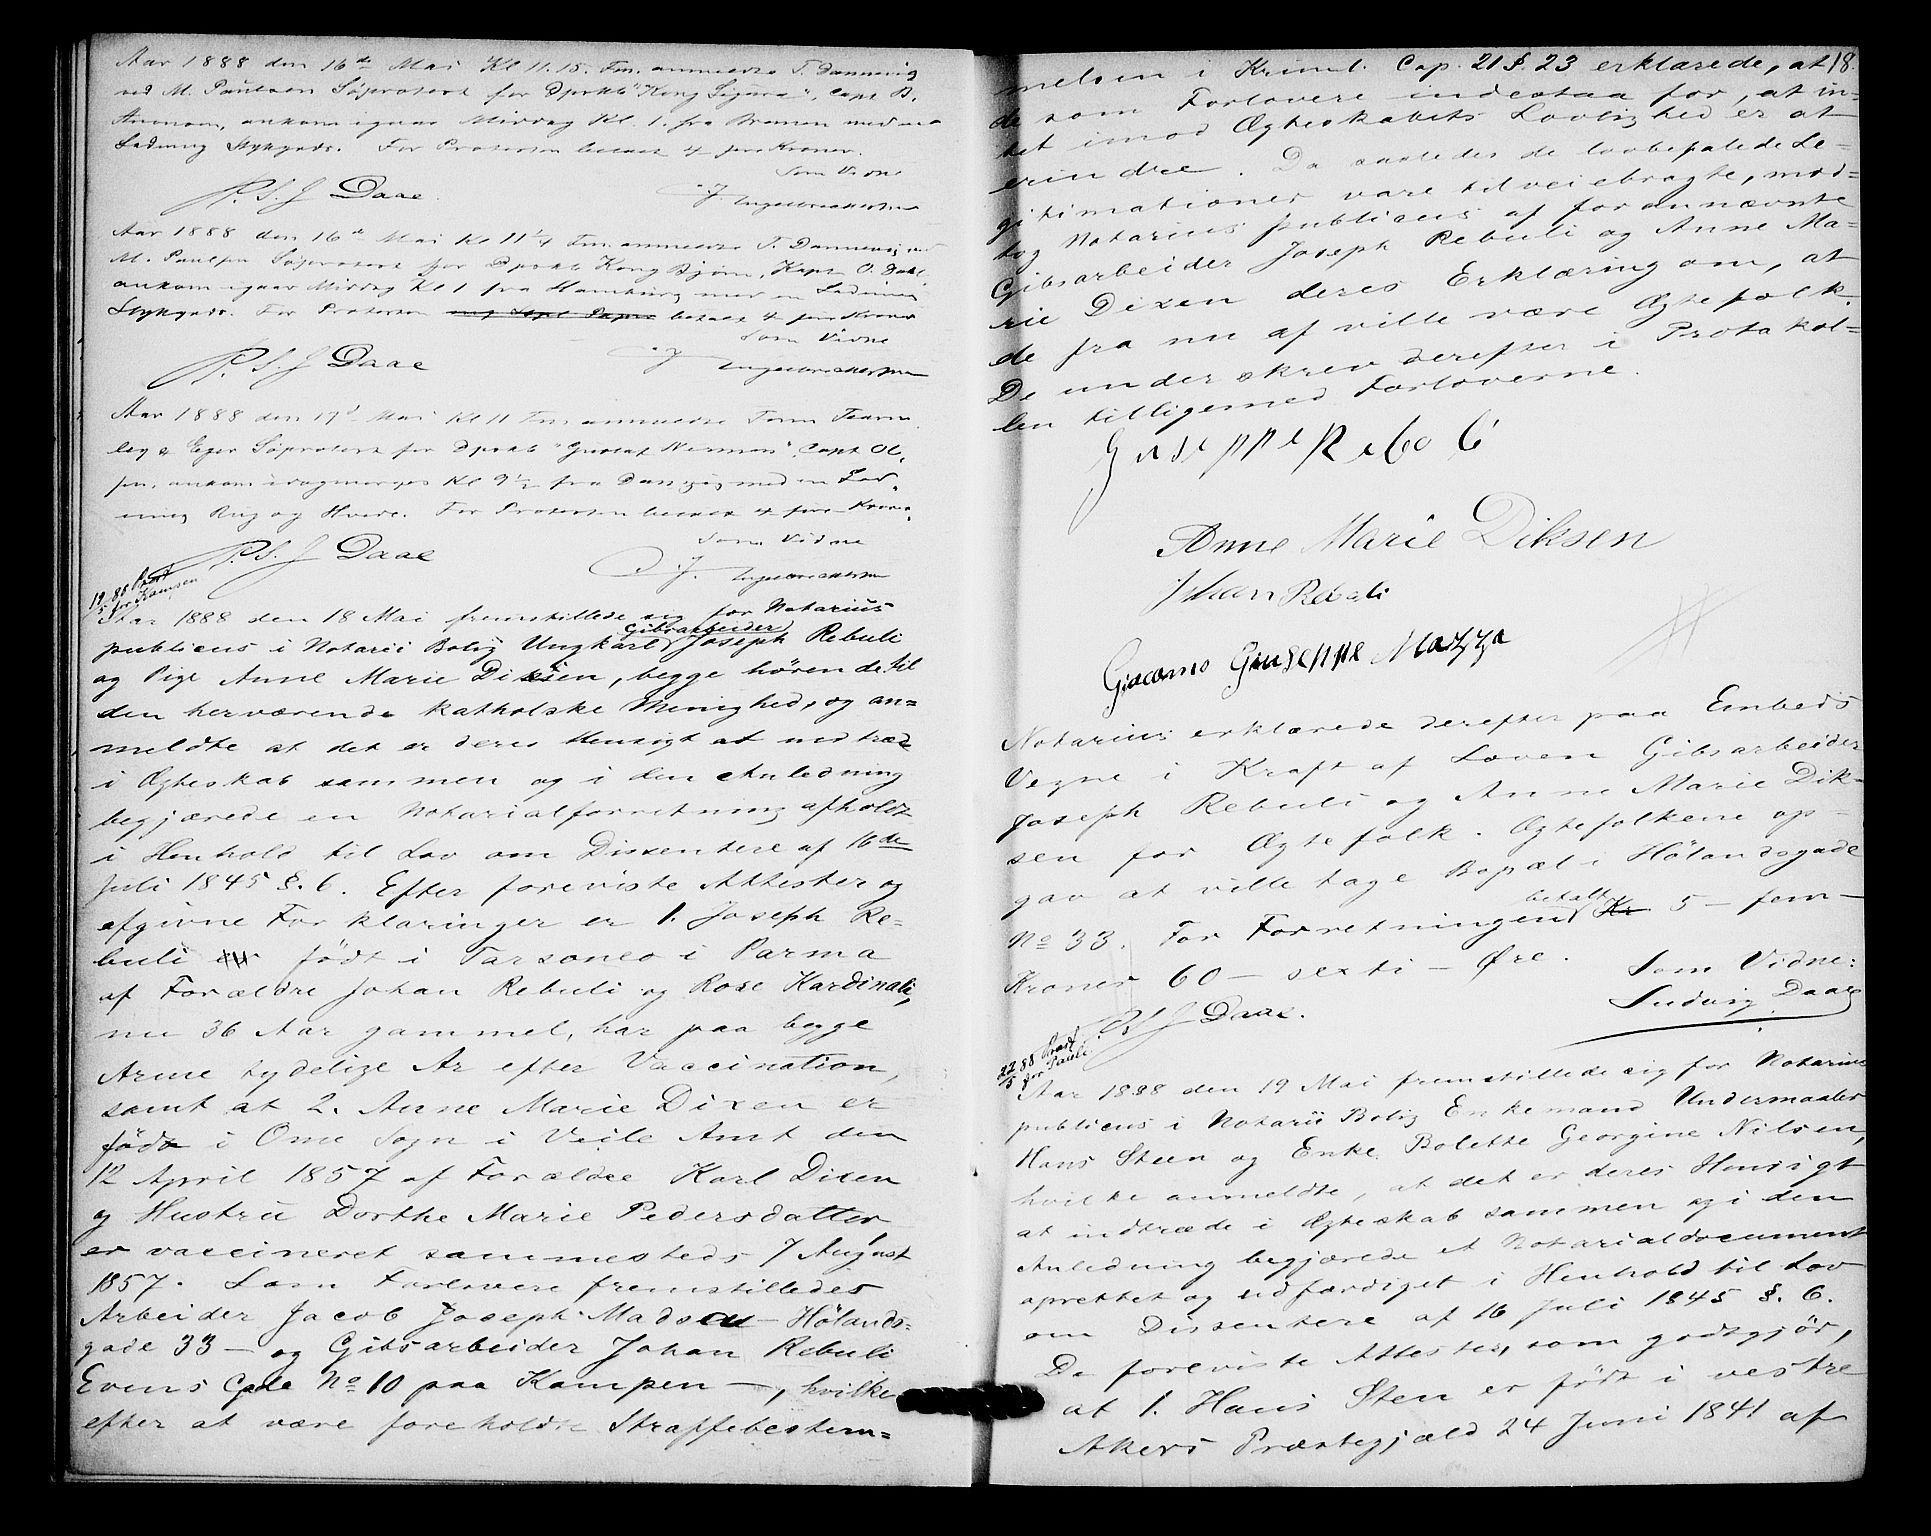 Aar 1888 den 16de Mai Kl 11.15. Fm. anmeldte T. Dannevig
ved M. Paulsen Søprotest for Dpskb "Kong Sigurd", Capt B.
ankom igaar Middag Kl. 1. fra Bremen med en
Ladning Stykgods. For Protesten betalt 4 fire Kroner.
Som Vidne
P.S.J Daae
J. Ingebrethsen
Aar 1888 den 16de Mai Kl 11¼ Fm. anmeldte T. Dannevig ved
M. Paulsen Søprotest for Dpskb Kong Bjørn, Kapt O. Dahl,
ankom igaar Middag Kl 1 fra Hamburg med en Ladning
Stykgods. For Protesten betalt 4 fire Kroner
Som Vidne
P.S.J Daae
J. Ingebrethsen
Aar 1888 den 17d Mai Kl 11 Fm. anmeldte Tom
ley & Eger Søprotest for Dpskb "Gustaf", Capt Ol,
sen, ankom idag morges Kl 9½ fra Danzig med en Lad,
ning Rug og Hvede. For Protesten betalt 4 fire Kroner,
Som Vidne
P.S. J Daae
J. Ingebrethsen
19/5 88 Præst
for Kampen
Aar 1888 den 18 Mai fremstillede sig for Notarius
Gibsarbeider
publicus i Notarii Bolig Ungkarl Joseph Rebuli
og Pige Anne Marie Dixen, begge hörende til
den herværende katholske Menighed, og an=
meldte at det er deres Hensigt at indtræde
i Ægteskab sammen og i den Anledning
begjærede en Notarialforretning afholdt
i Henhold til Lov om Dissentere af 16de
Juli 1845 §. 6. Efter foreviste Attester og
afgivne Forklaringer er 1. Joseph Re=
buli födt i Tarsoneo i Parma
af Forældre Johan Rebuli og Rose Kardinali,
nu 36 Aar gammel, har paa begge
Arme tydelige Ar efter Vaccination,
samt at 2. Anne Marie Dixen er
födt i Ome Sogn i Veile Amt den
12 April 1857 af Forældre Karl Dixen
og Hustru Dorthe Marie Pedersdatter,
er vaccineret sammesteds 7 August
1857. Som Forlovere fremstilledes
Arbeider Jacob Joseph Madsen - Hölands=
gade 33 - og Gibsarbeider Johan Rebuli
Evens Gade No 10 paa Kampen -, hvilke
efter at være foreholdt Straffebestem=
18.
melsen i Kriml. Cap. 21 §. 23 erklærede, at
de som Forlovere indestaa for, at in=
tet imod Ægteskabets Lovlighed er at
erindre. Da saaledes de lovbefalede Le=
gitimationer vare tilveiebragte, mod=
tog Notarius publicus af forannævnte
Gibsarbeider Joseph Rebuli og Anne Ma=
rie Dixen deres Erklæring om, at
de fra nu af ville være Ægtefolk.
De underskrev derefter i Protokol=
len tilligemed Forloverne.
Giuseppe Reboli
Anne Marie Diksen
Johan Rebali
Giacomo Giuseppe Mazza
Notarius erklærede derefter paa Embeds
Vegne i Kraft af Loven Gibsarbeider
Joseph Rebuli og Anne Marie Dik=
sen for Ægtefolk. Ægtefolkene op=
gav at ville tage Bopæl i Hölandsgade
betalt
No 33. For Forretningen Kr 5 - fem -
Kroner 60 - sexti - Øre.
Som Vidne:
P.S.J Daae.
Ludvig Daae
22/5 88 Præst
for Pauli.
Aar 1888 den 19 Mai fremstillede sig for Notarius
publicus i Notarii Bolig Enkemand Undermaaler
Hans Steen og Enke Bolette Georgine Nilsen,
hvilke anmeldte, at det er deres Hensigt
at indtræde i Ægteskab sammen og i den
Anledning begjærede et Notarialdocument
oprettet og udfærdiget i Henhold til Lov
om Dissentere af 16 Juli 1845 §. 6.
De foreviste Attester, som godtgjör,
at 1. Hans Sten er födt i vestre
Akers Præstegjæld 24 Juni 1841 af